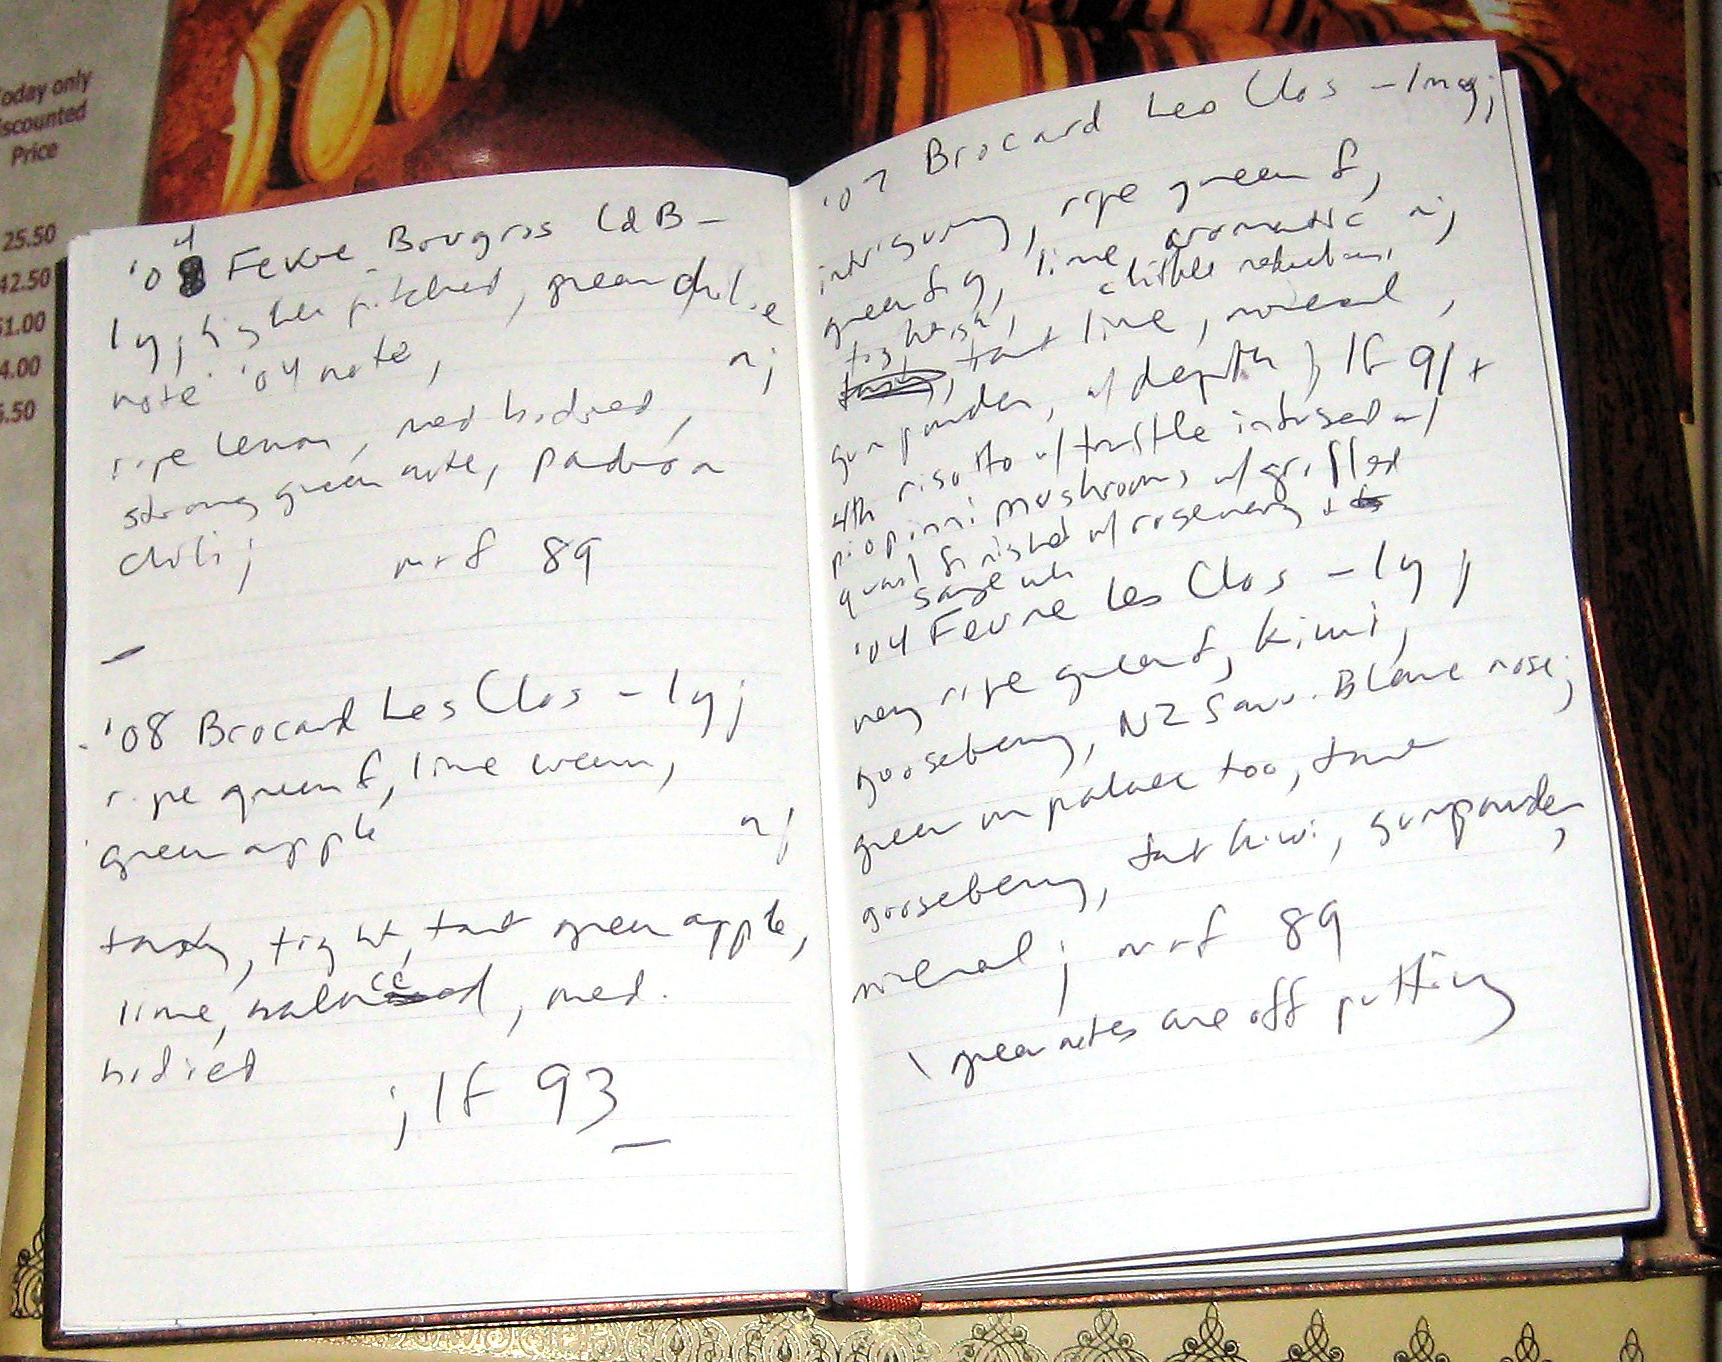 Today only
discounted
Price
25.50
42.50
51.00
4.00
5.50
'04 Fevre Bougros CdB –
ly; higher pitched, green chilie
note '04 note, n;
ripe lemon, med bodied,
strong green note, Padrón
chili; mrf 89
–
'08 Brocard Les Clos – ly;
ripe green f, lime cream,
green apple n;
tasty, tight, tart green apple,
lime, balanced, med.
bodied
; lf 93
'07 Brocard Les Clos – lmg;
intriguing, ripe green f,
green fig, lime aromatic n;
tightish, a little reduction,
tart lime, mineral,
gunpowder, w/ depth; lf 91+
4th risotto w/ truffle infused w/
pioppini mushrooms w/ grilled
quail finished w/ rosemary +
sage
'04 Fevre Les Clos – ly;
very ripe green f, kiwi,
gooseberry, NZ Sauv. Blanc nose;
green on palate too, tart
gooseberry, tart kiwi, gunpowder,
mineral; mrf 89
\ green notes are off putting